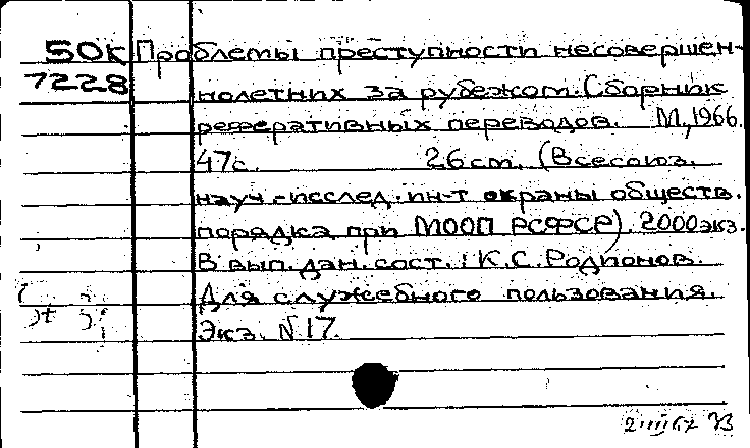 50К Проблемы преступности несовершен-
7228
нолетних за рубежом. Сборник
реферативных переводов. М, 1966.
47с. 26cm. (Всесоюз.
науч.-исслед. ин-т охраны обществ.
порядка при МООП РСФСР). 2000экз.
В вып. дан. сост.: К.С. Родионов.
Для служебного пользования.
Экз. N 17.